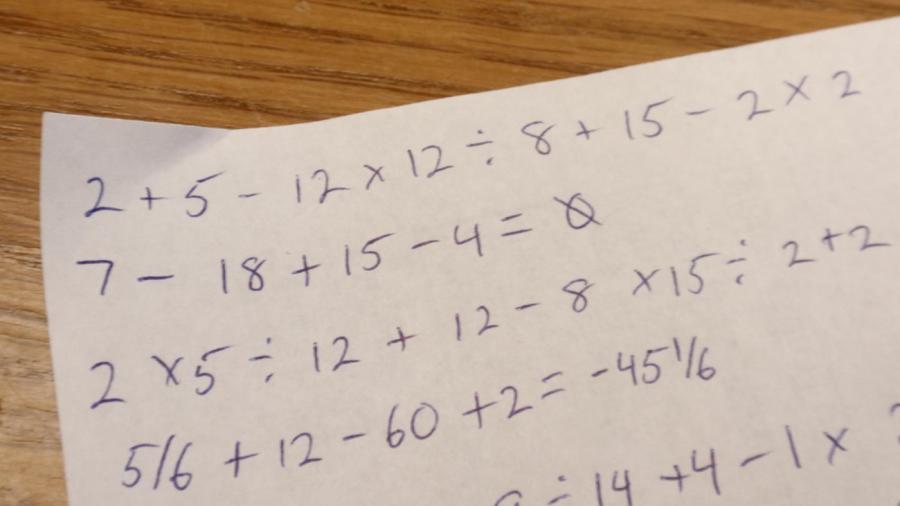 2 + 5 - 12 × 12 ÷ 8 + 15 - 2 × 2
7 - 18 + 15 - 4 = 0
2 × 5 ÷ 12 + 12 - 8 × 15 ÷ 2 + 2
5/6 + 12 - 60 + 2 = -45 1/6
÷ 14 + 4 - 1 ×